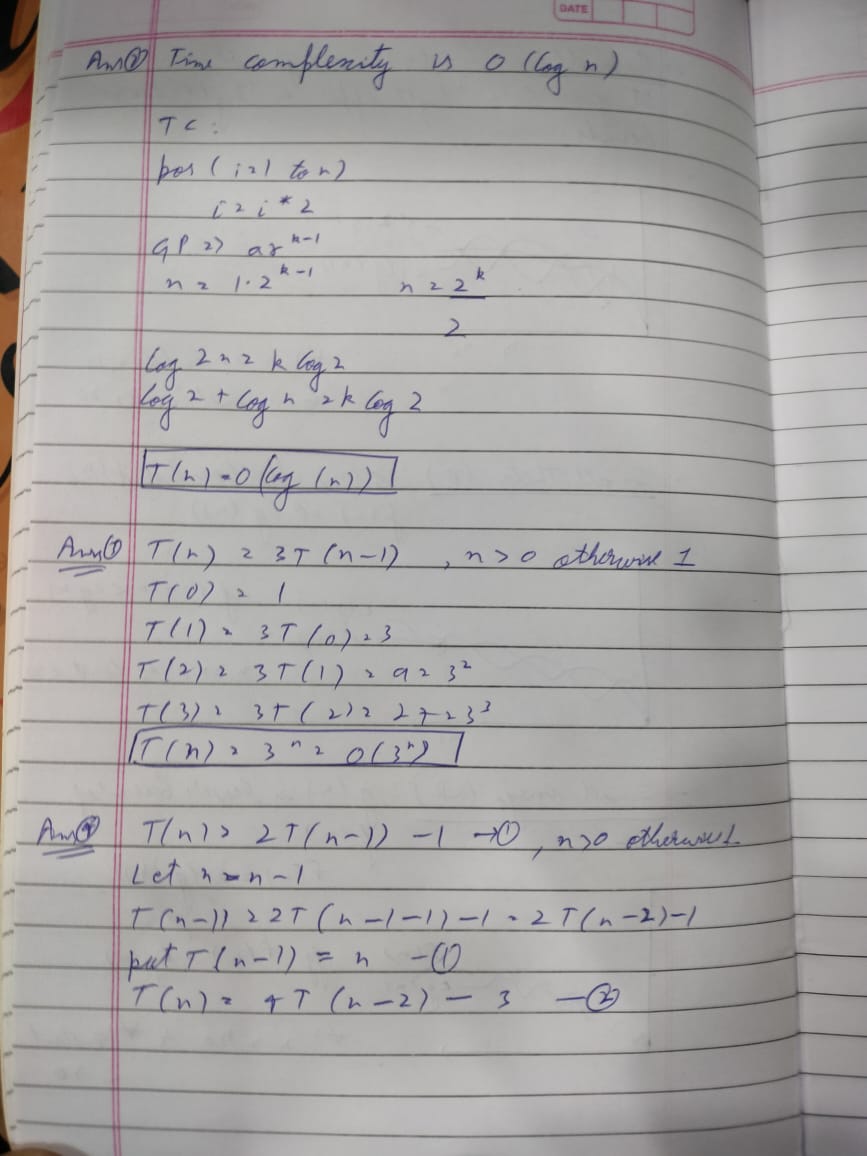 DATE
Ans② Time complexity is O (log n)
TC :
for (i=1 to n)
i = i * 2
GP => ar^k-1
n = 1.2^k-1 n = 2^k/2
log 2n = k log 2
log 2 + log n = k log 2
T(n) = O(log (n))
Ans① T(n) = 3T(n-1) , n>0 otherwise 1
T(0) = 1
T(1) = 3T(0) = 3
T(2) = 3T(1) = 9 = 3²
T(3) = 3T(2) = 27 = 3³
T(n) = 3ⁿ = O(3ⁿ)
T(n) = 2T(n-1) - 1 →① , n>0 otherwise 1
Let n = n-1
T(n-1) = 2T(n-1-1)-1 = 2T(n-2)-1
put T(n-1) = n -①
T(n) = 4T(n-2) - 3 -②